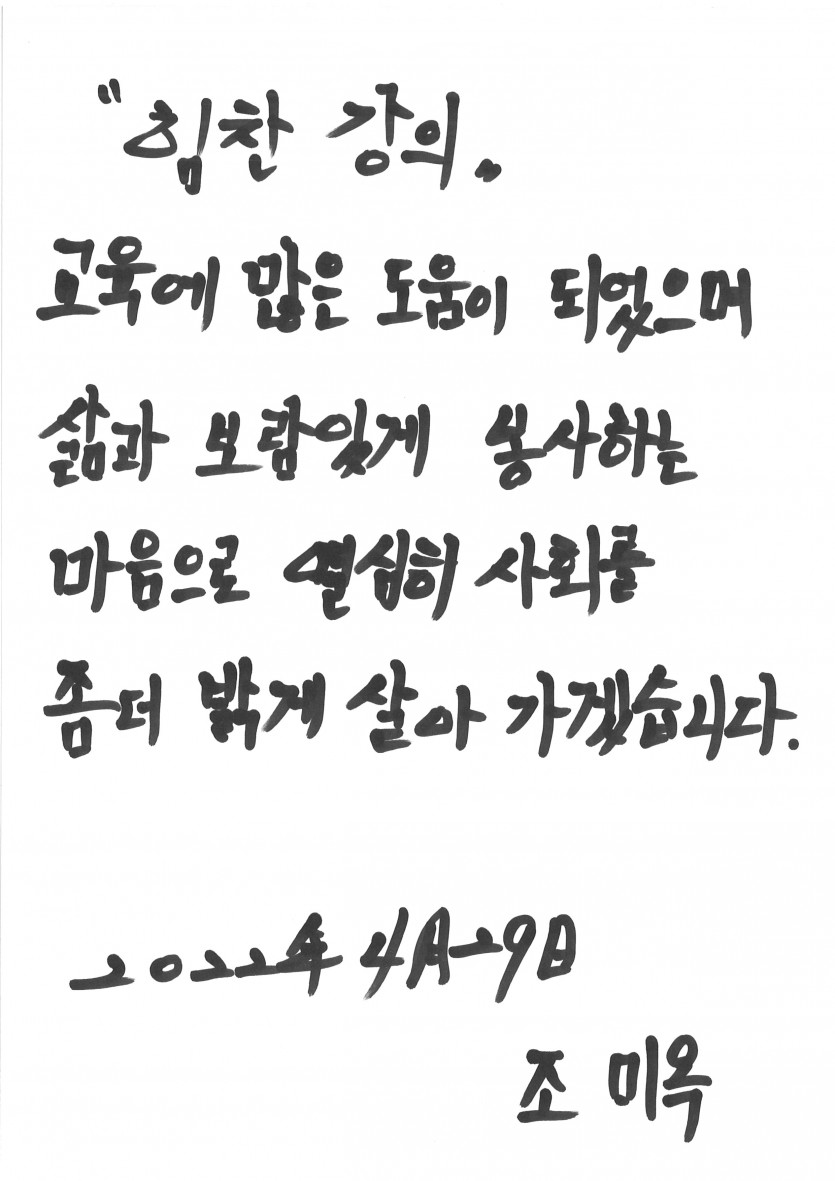 "힘찬 강의„
교육에 많은 도움이 되었으며
삶과 보람있게 봉사하는
마음으로 열심히 사회를
좀더 밝게 살아 가겠습니다.
2022年 4月 29日
조 미옥